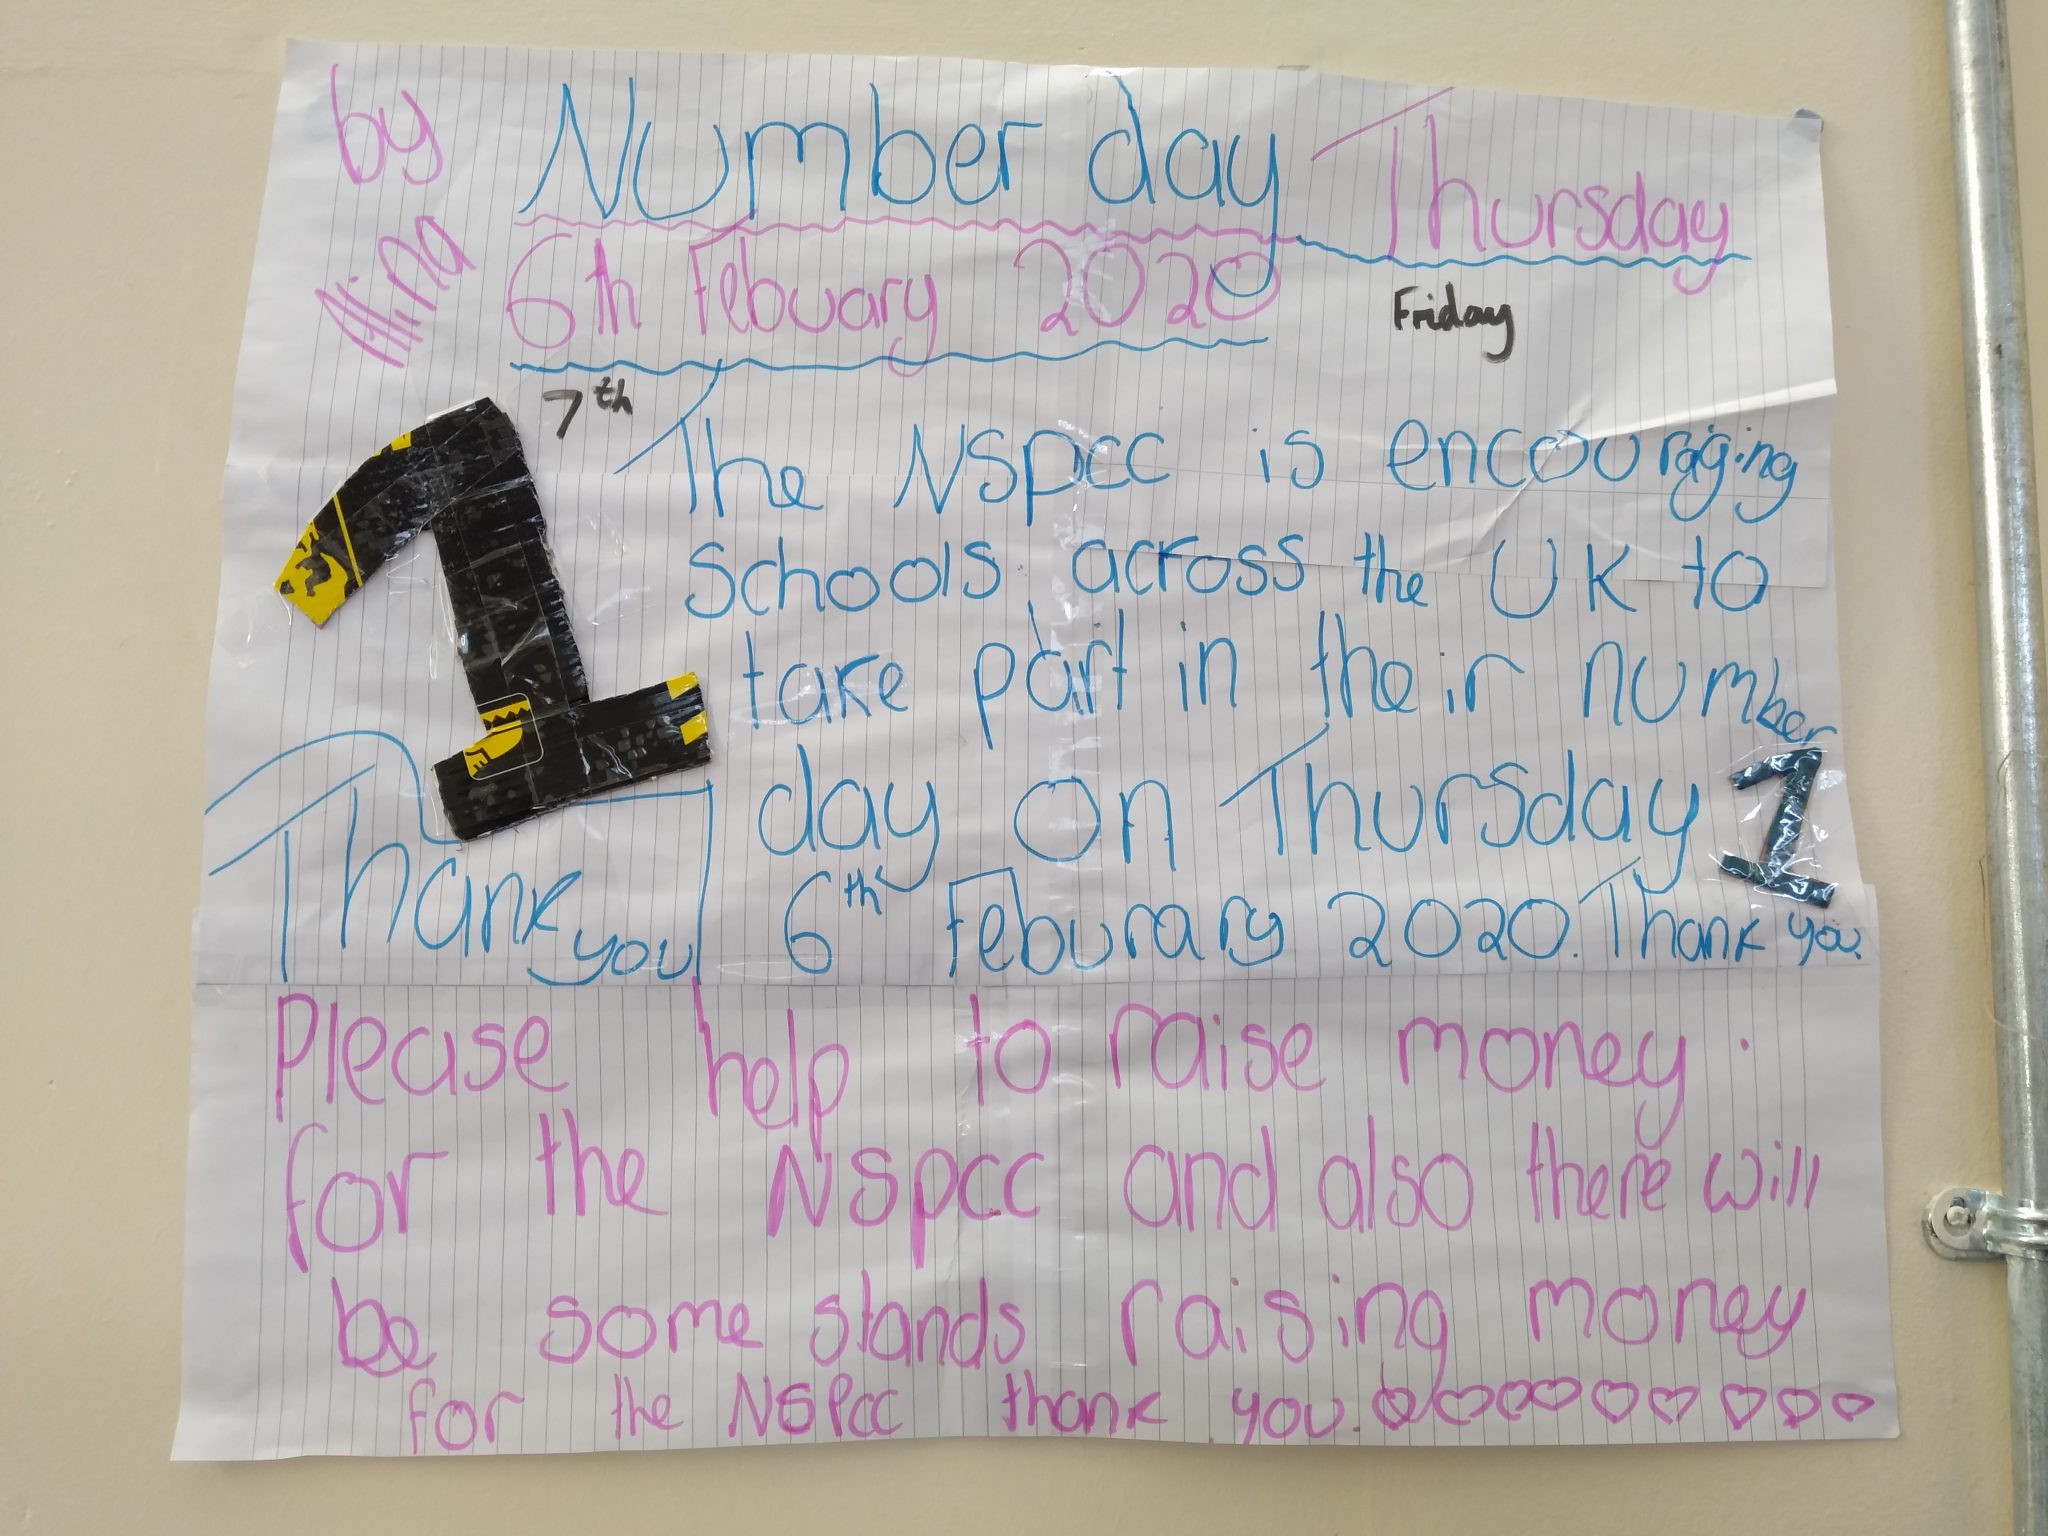 by
Alina
Number day
Thursday
6th Febuary 2020
Friday
7th
The NSPCC is encouraging
schools across the UK to
take part in their number
day on Thursday
6th Feburary 2020. Thank you.
Thank you
Please help to raise money.
for the NSPCC and also there will
be some stands raising money
for the NSPCC thank you.